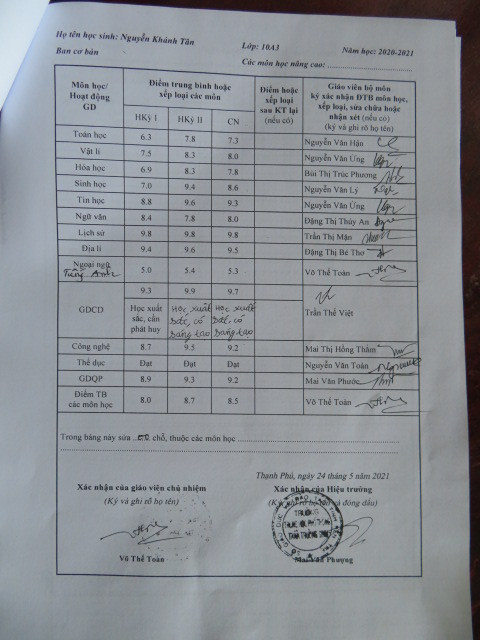 Họ tên học sinh: Nguyễn Khánh Tân Lớp: 10A3 Năm học: 2020-2021
Ban cơ bản Các môn học nâng cao:
Môn học/ Hoạt động GD
Điểm trung bình hoặc xếp loại các môn
HKỳ I HKỳ II CN
Điểm hoặc xếp loại sau KT lại (nếu có)
Giáo viên bộ môn ký xác nhận ĐTB môn học, xếp loại, sửa chữa hoặc nhận xét (nếu có) (ký và ghi rõ họ tên)
Toán học 6.3 7.8 7.3 Nguyễn Văn Hận
Vật lí 7.5 8.3 8.0 Nguyễn Văn Ửng
Hóa học 6.9 8.3 7.8 Bùi Thị Trúc Phương
Sinh học 7.0 9.4 8.6 Nguyễn Văn Lý
Tin học 8.8 9.6 9.3 Nguyễn Văn Ửng
Ngữ văn 8.4 7.8 8.0 Đặng Thị Thúy An
Lịch sử 9.8 9.8 9.8 Trần Thị Mận
Địa lí 9.4 9.6 9.5 Đặng Thị Bé Thơ
Ngoại ngữ Tiếng Anh 5.0 5.4 5.3 Võ Thế Toàn
GDCD 9.3 9.9 9.7 Trần Thế Việt
Học xuất sắc, cần phát huy
Học xuất sắc, có sáng tạo
Học xuất sắc, có sáng tạo
Công nghệ 8.7 9.5 9.2 Mai Thị Hồng Thắm
Thể dục Đạt Đạt Đạt Nguyễn Văn Toàn
GDQP 8.9 9.3 9.2 Mai Văn Phước
Điểm TB các môn học 8.0 8.7 8.5 Võ Thế Toàn
Trong bảng này sửa chỗ, thuộc các môn học
Thạnh Phú, ngày 24 tháng 5 năm 2021
Xác nhận của giáo viên chủ nhiệm Xác nhận của Hiệu trưởng
(Ký và ghi rõ họ tên) (Ký, ghi rõ họ tên và đóng dấu)
TRƯỜNG
Võ Thế Toàn Mai Văn Phượng